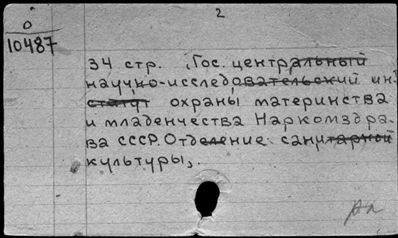 2
O
10487
34 стр. (Гос. центральный
научно-исследовательский ин-
ститут охраны материнства
и младенчества Наркомздра-
ва СССР. Отделение санитарной
культуры).